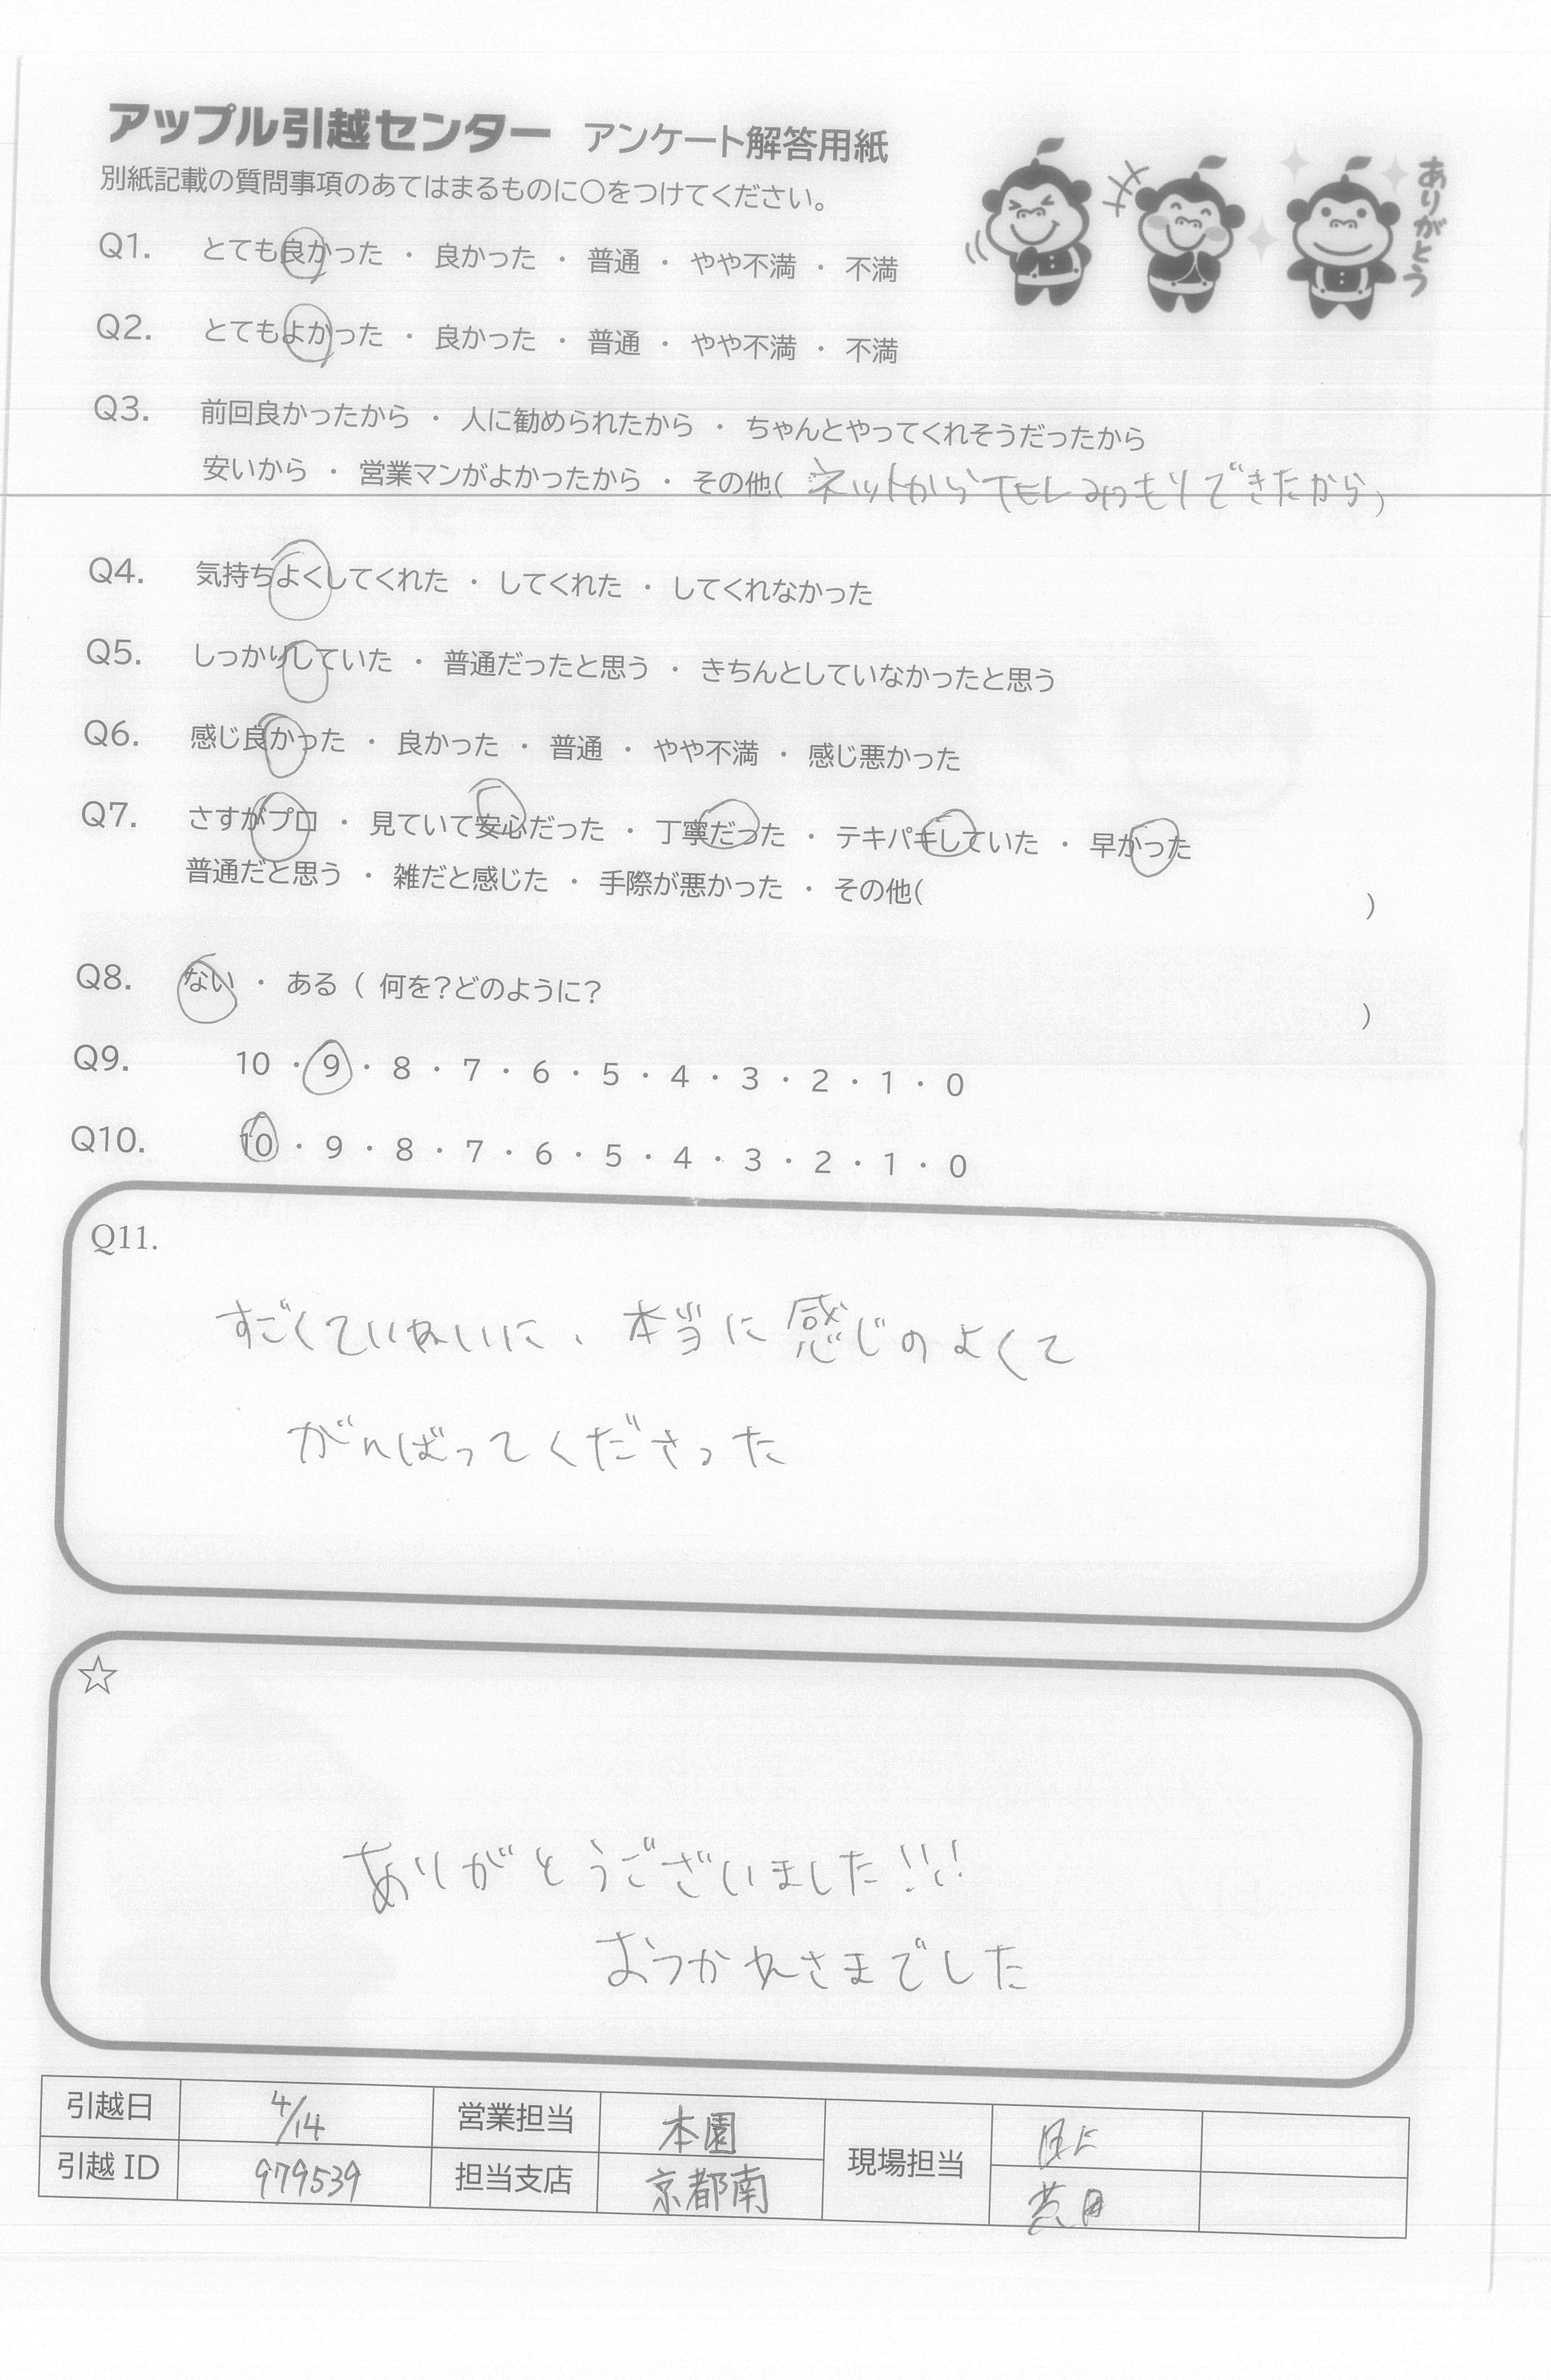 アップル引越センター アンケート解答用紙
別紙記載の質問事項のあてはまるものに○をつけてください。
ありがとう
Q1. とても良かった ・ 良かった ・ 普通 ・ やや不満 ・ 不満
Q2. とてもよかった ・ 良かった ・ 普通 ・ やや不満 ・ 不満
Q3. 前回良かったから ・ 人に勧められたから ・ ちゃんとやってくれそうだったから
安いから ・ 営業マンがよかったから ・ その他( ネットからTELみつもりできたから )
Q4. 気持ちよくしてくれた ・ してくれた ・ してくれなかった
Q5. しっかりしていた ・ 普通だったと思う ・ きちんとしていなかったと思う
Q6. 感じ良かった ・ 良かった ・ 普通 ・ やや不満 ・ 感じ悪かった
Q7. さすがプロ ・ 見ていて安心だった ・ 丁寧だった ・ テキパキしていた ・ 早かった
普通だと思う ・ 雑だと感じた ・ 手際が悪かった ・ その他( )
Q8. ない ・ ある ( 何を?どのように? )
Q9. 10 ・ 9 ・ 8 ・ 7 ・ 6 ・ 5 ・ 4 ・ 3 ・ 2 ・ 1 ・ 0
Q10. 10 ・ 9 ・ 8 ・ 7 ・ 6 ・ 5 ・ 4 ・ 3 ・ 2 ・ 1 ・ 0
Q11.
すごくていねいに、本当に感じのよくて
がんばってくださった
☆
ありがとうございました!!!
おつかれさまでした
引越日 4/14 営業担当 本園 現場担当
引越 ID 979539 担当支店 京都南